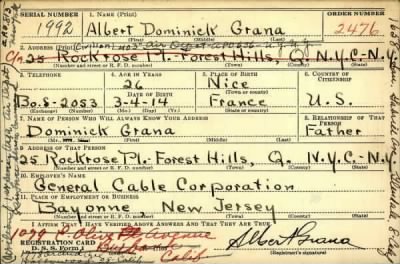 SERIAL NUMBER 1. NAME (Print) ORDER NUMBER
1992 Albert Dominick Grana 2476
(First) (Middle) (Last)
2. ADDRESS (Print)
25 Rockrose Pl.-Forest Hills, Q. N.Y.C.-N.Y.
(Number and street or R. F. D. number) (Town) (County) (State)
3. TELEPHONE 4. AGE IN YEARS 5. PLACE OF BIRTH 6. COUNTRY OF CITIZENSHIP
26 Nice
DATE OF BIRTH (Town or county)
Bo.8-2053 3-4-14 France U.S.
(Exchange) (Number) (Mo.) (Day) (Yr.) (State or country)
7. NAME OF PERSON WHO WILL ALWAYS KNOW YOUR ADDRESS 8. RELATIONSHIP OF THAT PERSON
Dominick Grana Father
(First) (Middle) (Last)
9. ADDRESS OF THAT PERSON
25 Rockrose Pl.-Forest Hills, Q. N.Y.C.-N.Y.
(Number and street or R. F. D. number) (Town) (County) (State)
10. EMPLOYER'S NAME
General Cable Corporation
11. PLACE OF EMPLOYMENT OR BUSINESS
Bayonne, New Jersey
(Number and street or R. F. D. number) (Town) (County) (State)
I AFFIRM THAT I HAVE VERIFIED ABOVE ANSWERS AND THAT THEY ARE TRUE.
REGISTRATION CARD
D. S. S. Form 1
Calif
Albert Grana